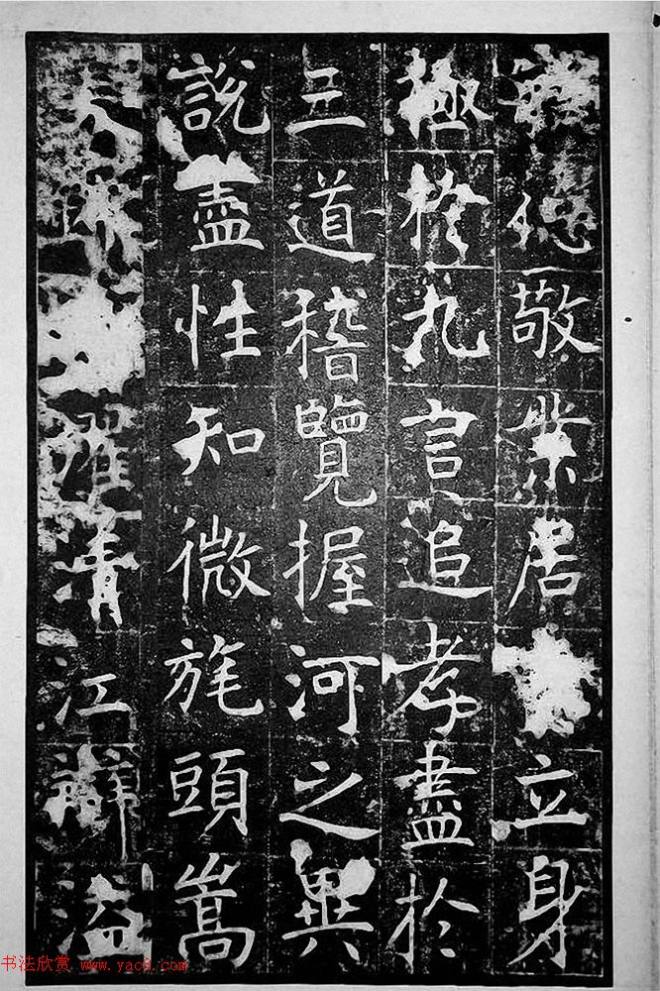 德敬業居立身
極於九言追孝盡於
三道稽覽握河之異
說盡性知微旄頭嵩
濯清江辭溢
书法欣赏 www.yac8.com